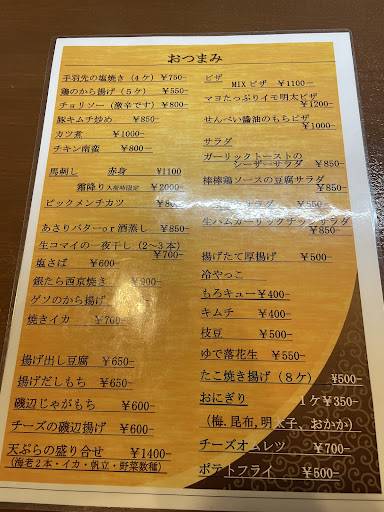 おつまみ
手羽先の塩焼き(4ケ)¥750-
鶏のから揚げ(5ケ) ¥550-
チョリソー(激辛です)¥800-
豚キムチ炒め ¥850-
カツ煮 ¥1000-
チキン南蛮 ¥800-
馬刺し 赤身 ¥1100
霜降り入荷時限定 ¥2000-
ビックメンチカツ
あさりバターor酒蒸し ¥850-
生コマイの一夜干し(2〜3本)
¥700-
塩さば ¥600-
銀たら西京焼き ¥900-
ゲソのから揚げ
焼きイカ ¥700-
揚げ出し豆腐 ¥650-
揚げだしもち ¥650-
磯辺じゃがもち ¥600-
チーズの磯辺揚げ ¥600-
天ぷらの盛り合せ ¥1400-
(海老2本・イカ・帆立・野菜数種)
ピザ
MIXピザ ¥1100-
マヨたっぷりイモ明太ピザ
¥1200-
せんべい醤油のもちピザ
¥1000-
サラダ
ガーリックトーストの
シーザーサラダ
¥850-
棒棒鶏ソースの豆腐サラダ
¥850-
サラダ ¥850-
生ハムガーリックナッツサラダ
¥850-
揚げたて厚揚げ ¥550-
冷やっこ
もろキュー¥400-
キムチ ¥400-
枝豆 ¥500-
ゆで落花生 ¥550-
たこ焼き揚げ(8ケ) ¥500-
おにぎり 1ケ¥350-
(梅.昆布,明太子、おかか)
チーズオムレツ ¥700-
ポテトフライ ¥500-